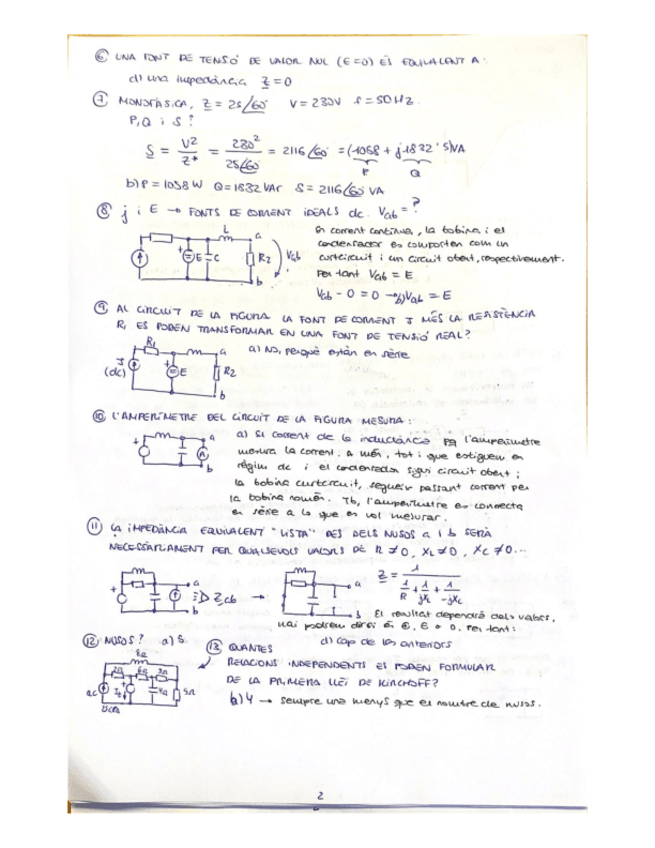 ⑥ UNA FONT DE TENSIÓ DE VALOR NUL (E=0) ÉS EQUIVALENT A:
d) una impedància Z=0
⑦ MONOFÀSICA, Z = 25/60° V = 230V f = 50Hz.
P, Q i S?
S = V²/Z* = 230²/25/-60° = 2116/60° = (1058 + j1832'5)VA
P Q
b) P = 1058 W Q = 1832 VAr S = 2116/60° VA
⑧ j i E → FONTS DE CORRENT IDEALS dc. Vab = ?
L a
E C R2 Vab
b
En corrent contínua, la bobina i el
condensador es comporten com un
curtcircuit i un circuit obert, respectivament.
Per tant Vab = E
Vab - 0 = 0 → Vab = E
⑨ AL CIRCUIT DE LA FIGURA LA FONT DE CORRENT J MÉS LA RESISTÈNCIA
R₁ ES PODEN TRANSFORMAR EN UNA FONT DE TENSIÓ REAL?
R₁ a
J (dc) E R2
b
a) NO, perquè están en sèrie
⑩ L'AMPERÍMETRE DEL CIRCUIT DE LA FIGURA MESURA:
a
A
b
a) El corrent de la inductància pq l'amperímetre
mesura la corrent. A més, tot i que estiguem en
règim dc i el condensador sigui circuit obert;
la bobina curtcircuit, segueix passant corrent per
la bobina només. Tb, l'amperímetre es connecta
en sèrie a lo que es vol mesurar.
⑪ LA IMPEDÀNCIA EQUIVALENT "VISTA" DES DELS NUSOS a i b SERÀ
NECESSÀRIAMENT PER QUALSEVOLS VALORS DE R ≠ 0, XL ≠ 0, XC ≠ 0...
a
b
Zab →
a
b
Z = 1/(1/R + 1/jXL + 1/-jXC)
El resultat dependrà dels valors,
per tant:
d) cap de les anteriors
⑫ NUSOS? a) 5
⑬ QUANTES
RELACIONS INDEPENDENTS ES PODEN FORMULAR
DE LA PRIMERA LLEI DE KIRCHOFF?
b) 4 → sempre una menys que el nombre de nusos.
2